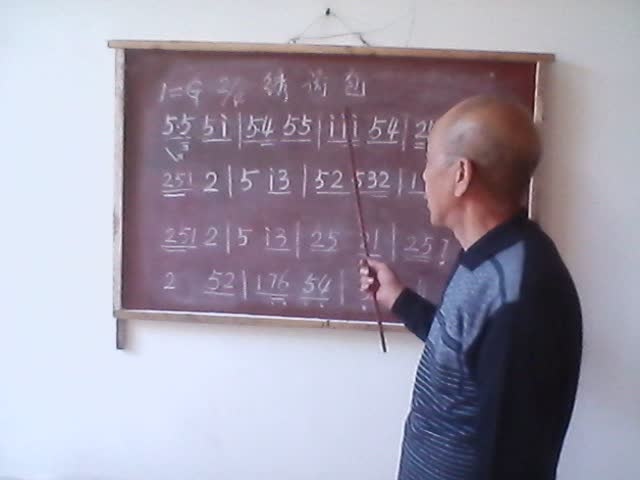 1=G 2/4 绣荷包
5·5 5i | 54 55 | iii 54 | 2
251 2 | 5 i3 | 52 532 | 1
251 2 | 5 i3 | 25 21 | 25
2 52 | 176 54 |